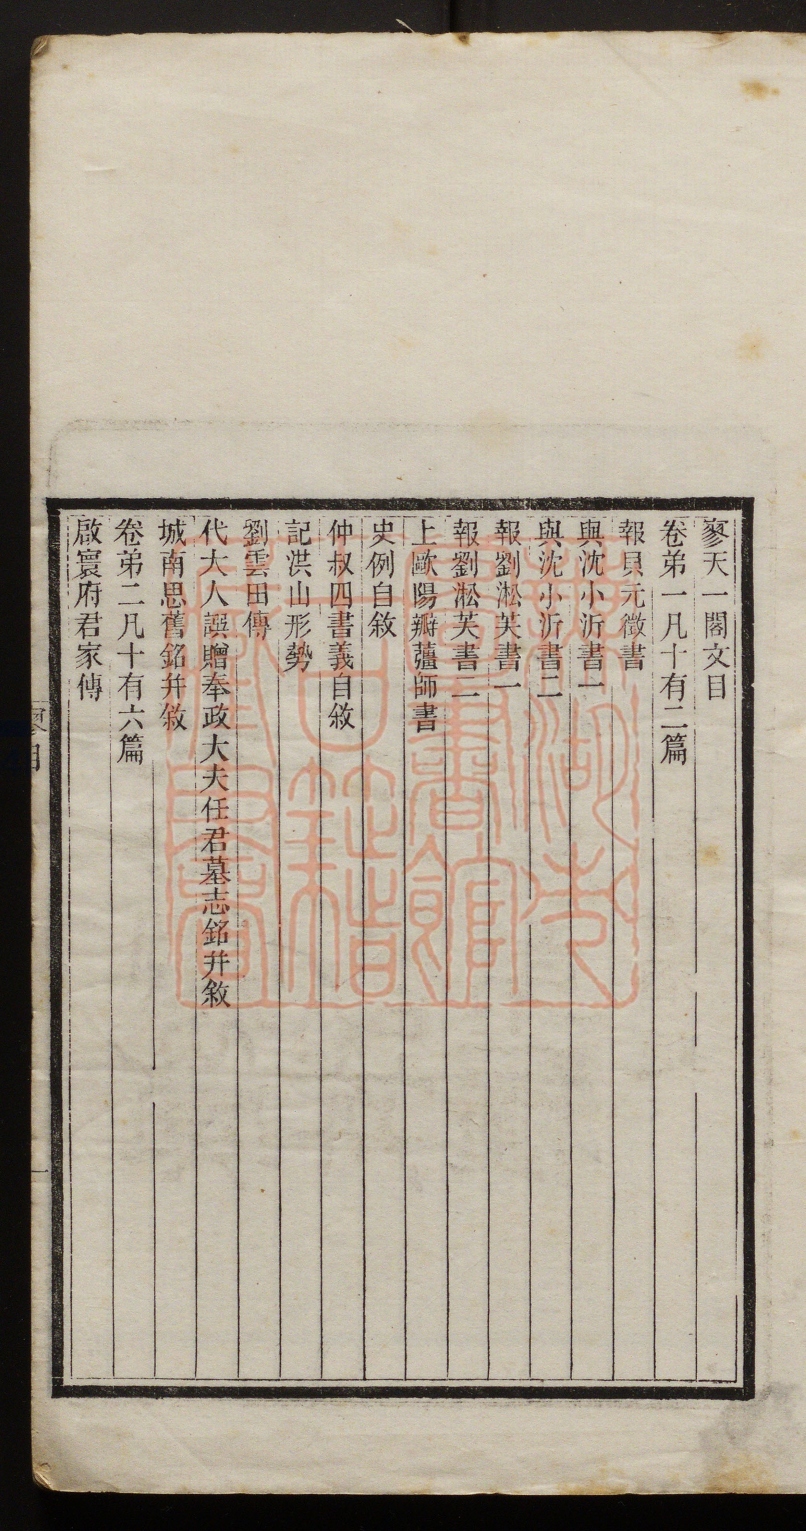 寥天一閣文目
卷弟一凡十有二篇
報貝元徵書
與沈小沂書一
與沈小沂書二
報劉淞芙書一
報劉淞芙書二
上歐陽瓣薑師書
史例自敘
仲叔四書義自敘
記洪山形勢
劉雲田傳
代大人譔贈奉政大夫任君墓志銘幷敘
城南思舊銘幷敘
卷弟二凡十有六篇
啟寰府君家傳
蕪湖市
圖書館
古籍
藏書